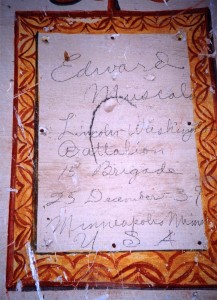 Edward
Muscala
Lincoln-Washing
Battalion
15 Brigade
23 December - 39
Minneapolis Minn
U S A